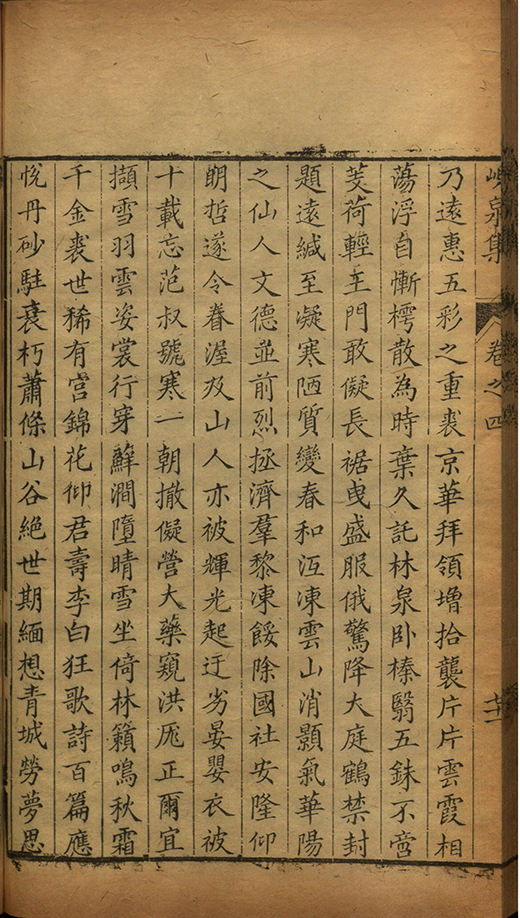 峴泉集 卷之四 十二
乃遠惠五彩之重裘京華拜領增拾襲片片雲霞相
蕩浮自慚樗散為時棄久託林泉卧榛翳五銖不啻
芰荷輕至門敢儗長裾曳盛服俄驚降大庭鶴禁封
題遠緘至凝寒陋質變春和沍凍雲山消顥氣華陽
之仙人文德並前烈拯濟羣黎凍餒除國社安隆仰
明哲遂令眷渥及山人亦被輝光起迂劣晏嬰衣被
十載忘范叔號寒一朝撤儗營大藥窺洪厖正爾宜
擷雪羽雲姿裳行穿蘚澗墮晴雪坐倚林籟鳴秋霜
千金裘世稀有宮錦花仰君壽李白狂歌詩百篇應
悅丹砂駐衰朽蕭條山谷絕世期緬想青城勞夢思